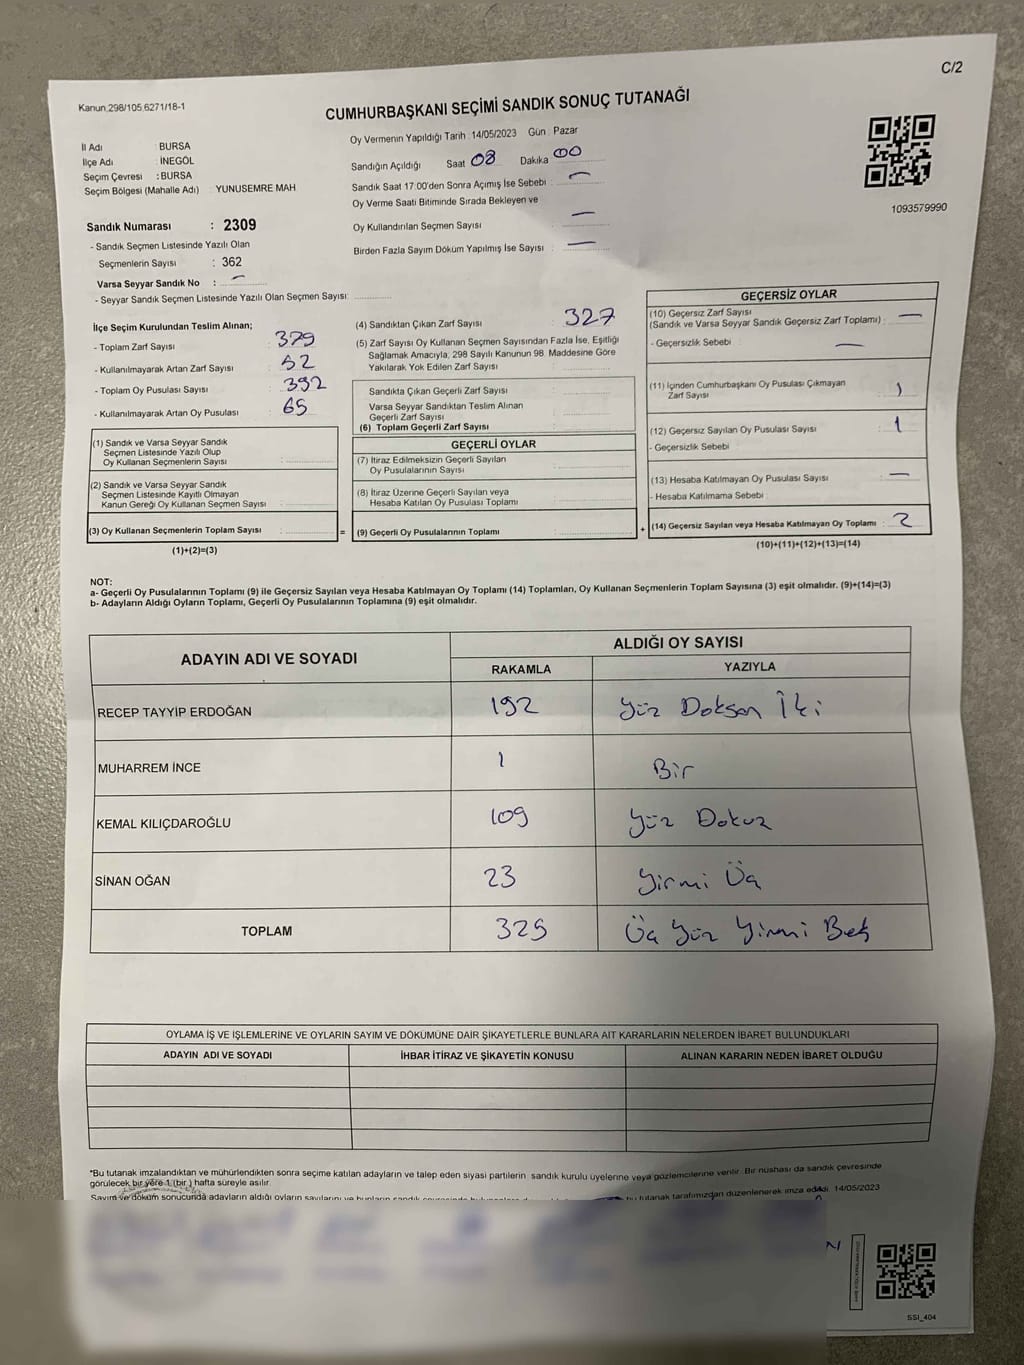 C/2
Kanun 298/105,6271/18-1
CUMHURBAŞKANI SEÇİMİ SANDIK SONUÇ TUTANAĞI
İl Adı : BURSA
İlçe Adı : İNEGÖL
Seçim Çevresi : BURSA
Seçim Bölgesi (Mahalle Adı) : YUNUSEMRE MAH
Sandık Numarası : 2309
- Sandık Seçmen Listesinde Yazılı Olan
Seçmenlerin Sayısı : 362
Varsa Seyyar Sandık No : —
- Seyyar Sandık Seçmen Listesinde Yazılı Olan Seçmen Sayısı:
Oy Vermenin Yapıldığı Tarih : 14/05/2023 Gün : Pazar
Sandığın Açıldığı Saat 08 Dakika 00
Sandık Saat 17:00'den Sonra Açımış İse Sebebi : —
Oy Verme Saati Bitiminde Sırada Bekleyen ve
Oy Kullandırılan Seçmen Sayısı : —
Birden Fazla Sayım Döküm Yapılmış İse Sayısı : —
1093579990
İlçe Seçim Kurulundan Teslim Alınan;
- Toplam Zarf Sayısı : 379
- Kullanılmayarak Artan Zarf Sayısı : 52
- Toplam Oy Pusulası Sayısı : 392
- Kullanılmayarak Artan Oy Pusulası : 65
(1) Sandık ve Varsa Seyyar Sandık
Seçmen Listesinde Yazılı Olup
Oy Kullanan Seçmenlerin Sayısı :
(2) Sandık ve Varsa Seyyar Sandık
Seçmen Listesinde Kayıtlı Olmayan
Kanun Gereği Oy Kullanan Seçmen Sayısı :
(3) Oy Kullanan Seçmenlerin Toplam Sayısı : =
(1)+(2)=(3)
(4) Sandıktan Çıkan Zarf Sayısı : 327
(5) Zarf Sayısı Oy Kullanan Seçmen Sayısından Fazla İse, Eşitliği
Sağlamak Amacıyla, 298 Sayılı Kanunun 98. Maddesine Göre
Yakılarak Yok Edilen Zarf Sayısı :
Sandıkta Çıkan Geçerli Zarf Sayısı :
Varsa Seyyar Sandıktan Teslim Alınan
Geçerli Zarf Sayısı :
(6) Toplam Geçerli Zarf Sayısı :
GEÇERLİ OYLAR
(7) İtiraz Edilmeksizin Geçerli Sayılan
Oy Pusulalarının Sayısı :
(8) İtiraz Üzerine Geçerli Sayılan veya
Hesaba Katılan Oy Pusulası Toplamı :
(9) Geçerli Oy Pusulalarının Toplamı : +
GEÇERSİZ OYLAR
(10) Geçersiz Zarf Sayısı
(Sandık ve Varsa Seyyar Sandık Geçersiz Zarf Toplamı) : —
- Geçersizlik Sebebi : —
(11) İçinden Cumhurbaşkanı Oy Pusulası Çıkmayan
Zarf Sayısı : 1
(12) Geçersiz Sayılan Oy Pusulası Sayısı : 1
- Geçersizlik Sebebi :
(13) Hesaba Katılmayan Oy Pusulası Sayısı : —
- Hesaba Katılmama Sebebi :
(14) Geçersiz Sayılan veya Hesaba Katılmayan Oy Toplamı : 2
(10)+(11)+(12)+(13)=(14)
NOT:
a- Geçerli Oy Pusulalarının Toplamı (9) ile Geçersiz Sayılan veya Hesaba Katılmayan Oy Toplamı (14) Toplamları, Oy Kullanan Seçmenlerin Toplam Sayısına (3) eşit olmalıdır. (9)+(14)=(3)
b- Adayların Aldığı Oyların Toplamı, Geçerli Oy Pusulalarının Toplamına (9) eşit olmalıdır.
ADAYIN ADI VE SOYADI ALDIĞI OY SAYISI
RAKAMLA YAZIYLA
RECEP TAYYİP ERDOĞAN 192 Yüz Doksan İki
MUHARREM İNCE 1 Bir
KEMAL KILIÇDAROĞLU 109 Yüz Dokuz
SİNAN OĞAN 23 Yirmi Üç
TOPLAM 325 Üç Yüz Yirmi Beş
OYLAMA İŞ VE İŞLEMLERİNE VE OYLARIN SAYIM VE DÖKÜMÜNE DAİR ŞİKAYETLERLE BUNLARA AİT KARARLARIN NELERDEN İBARET BULUNDUKLARI
ADAYIN ADI VE SOYADI İHBAR İTİRAZ VE ŞİKAYETİN KONUSU ALINAN KARARIN NEDEN İBARET OLDUĞU
*Bu tutanak imzalandıktan ve mühürlendikten sonra seçime katılan adayların ve talep eden siyasi partilerin sandık kurulu üyelerine veya gözlemcilerine verilir. Bir nüshası da sandık çevresinde
görülecek bir yere 1 (bir ) hafta süreyle asılır.
Sayım ve döküm sonucunda adayların aldığı oyların sayılarını ve bunların sandık bu tutanak tarafımızdan düzenlenerek imza edildi. 14/05/2023
SSI_404